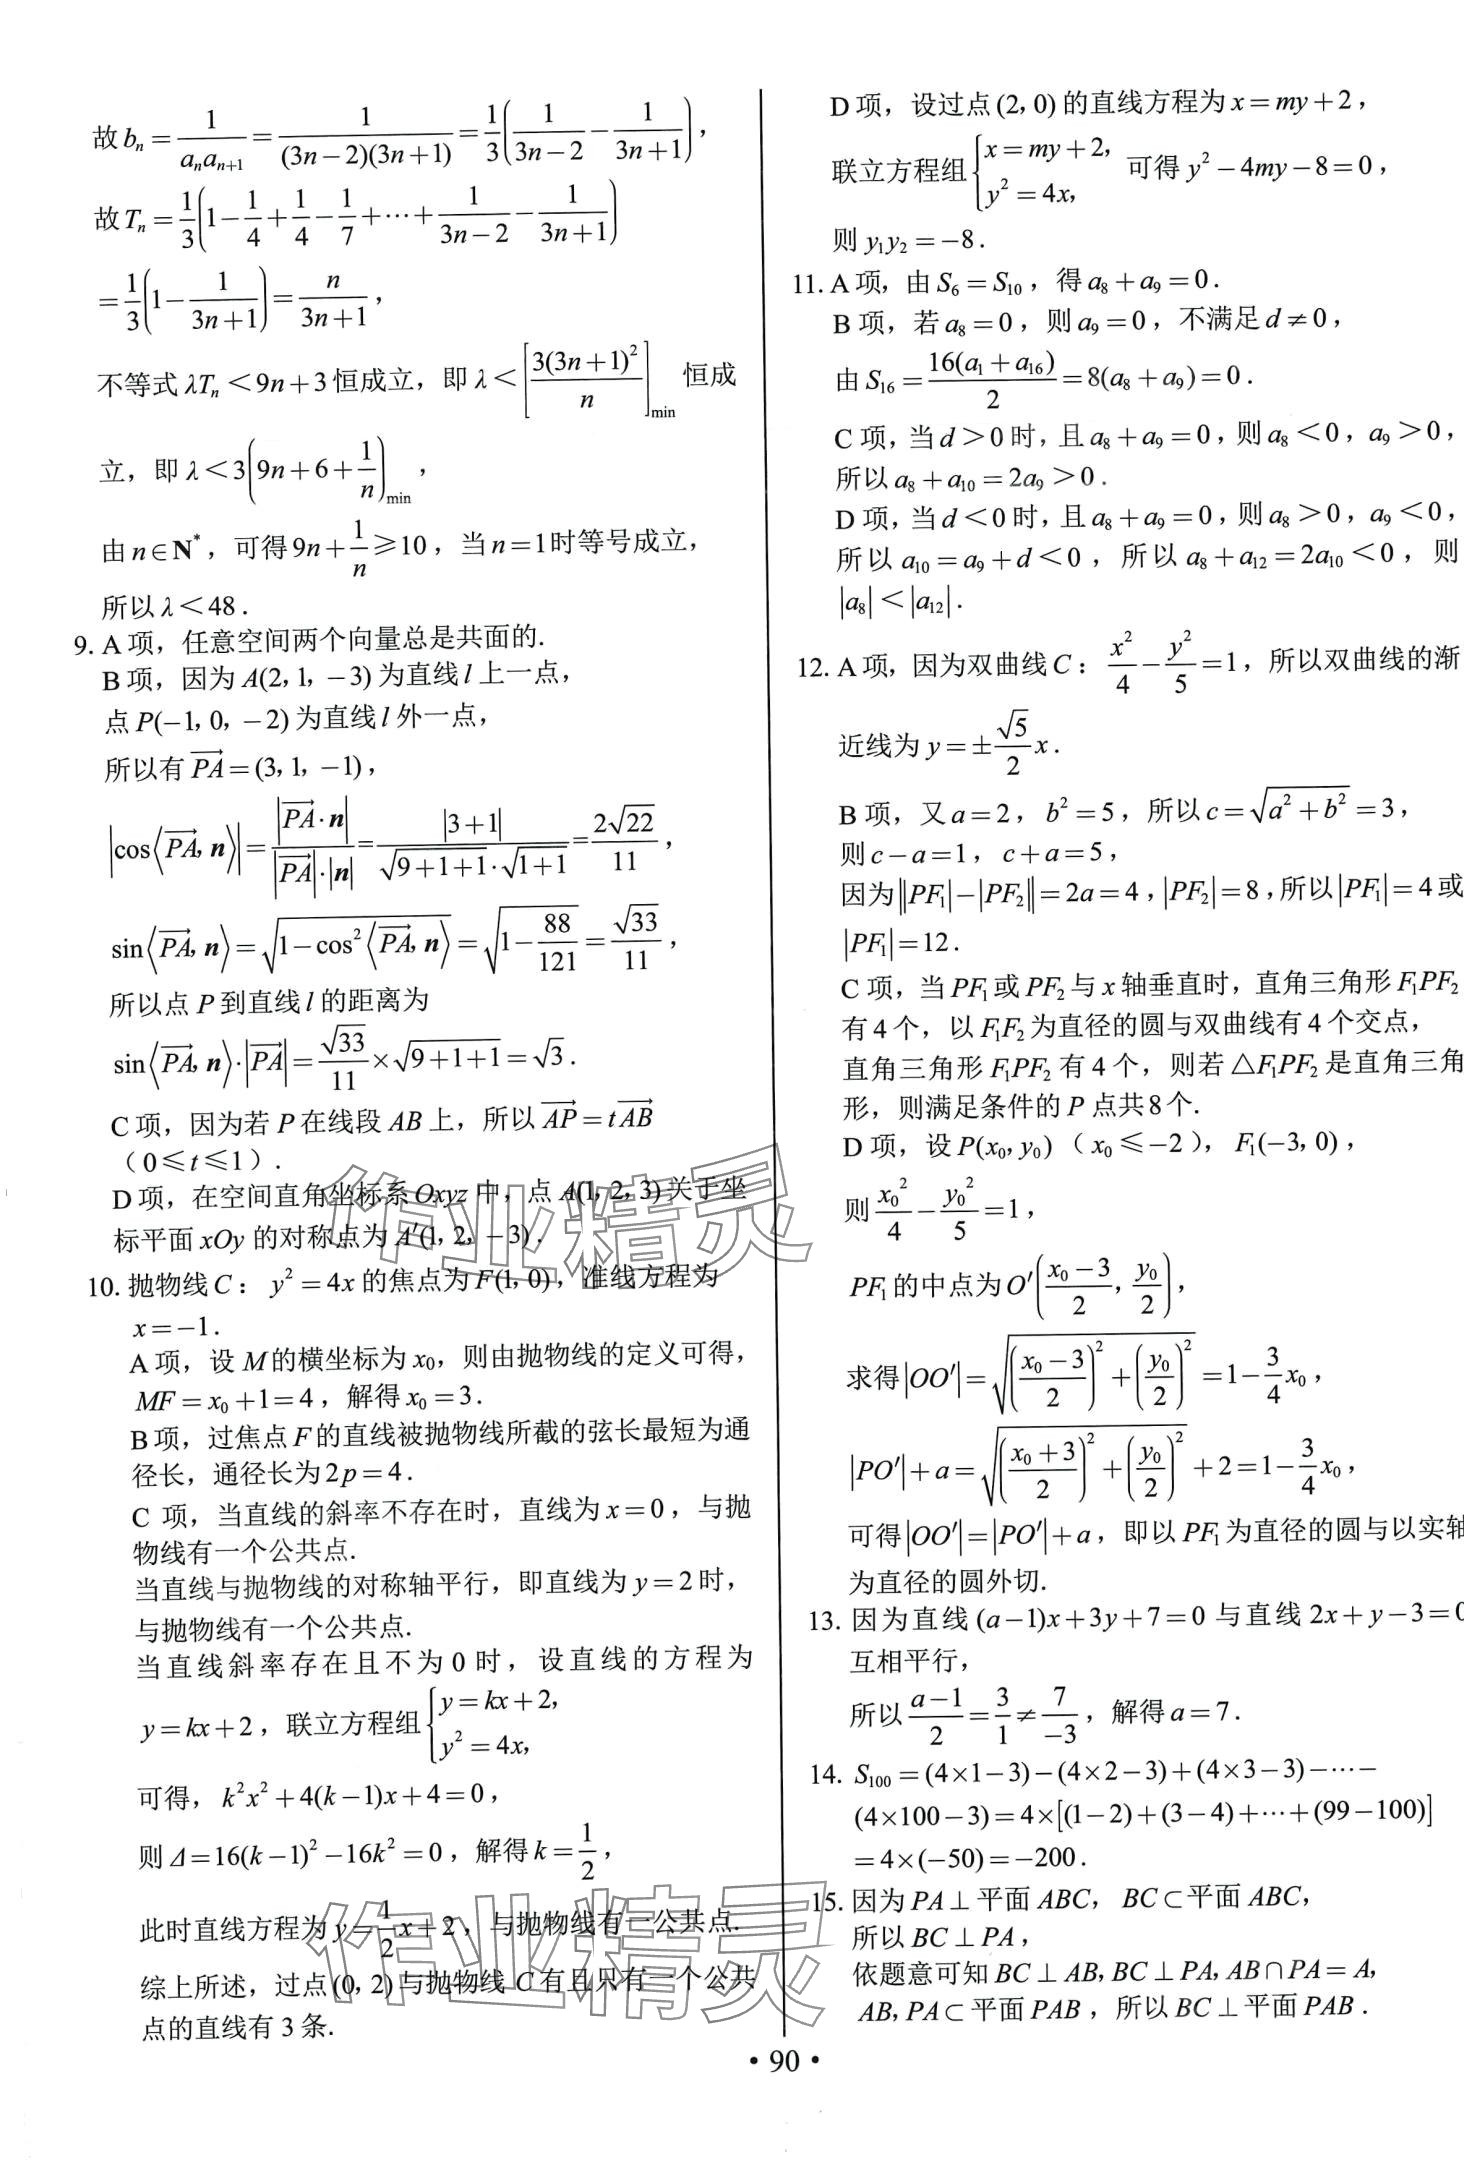 故 bₙ = 1/(aₙaₙ₊₁) = 1/((3n−2)(3n+1)) = 1/3(1/(3n−2) − 1/(3n+1)),
故 Tₙ = 1/3(1 − 1/4 + 1/4 − 1/7 + ⋯ + 1/(3n−2) − 1/(3n+1))
= 1/3(1 − 1/(3n+1)) = n/(3n+1),
不等式 λTₙ < 9n+3 恒成立，即 λ < [3(3n+1)²/n]min 恒成
立，即 λ < 3(9n+6+1/n)min，
由 n∈N*，可得 9n+1/n ≥ 10，当 n=1时等号成立，
所以 λ < 48.
9. A 项，任意空间两个向量总是共面的.
B 项，因为 A(2, 1, −3) 为直线 l 上一点，
点 P(−1, 0, −2) 为直线 l 外一点，
所以有 PA→ = (3, 1, −1)，
|cos⟨PA→, n⟩| = |PA→·n|/(|PA→|·|n|) = |3+1|/(√(9+1+1)·√(1+1)) = 2√22/11，
sin⟨PA→, n⟩ = √(1−cos²⟨PA→, n⟩) = √(1−88/121) = √33/11，
所以点 P 到直线 l 的距离为
sin⟨PA→, n⟩·|PA→| = √33/11 × √(9+1+1) = √3.
C 项，因为若 P 在线段 AB 上，所以 AP→ = tAB→
（0≤t≤1）.
D 项，在空间直角坐标系 Oxyz 中，点 A(1, 2, 3) 关于坐
标平面 xOy 的对称点为 A′(1, 2, −3).
10. 抛物线 C：y²=4x 的焦点为 F(1, 0)，准线方程为
x=−1.
A 项，设 M的横坐标为 x₀，则由抛物线的定义可得，
MF = x₀+1=4，解得 x₀=3.
B 项，过焦点 F 的直线被抛物线所截的弦长最短为通
径长，通径长为 2p=4.
C 项，当直线的斜率不存在时，直线为 x=0，与抛
物线有一个公共点.
当直线与抛物线的对称轴平行，即直线为 y=2 时，
与抛物线有一个公共点.
当直线斜率存在且不为 0 时，设直线的方程为
y=kx+2，联立方程组{y=kx+2, y²=4x,
可得，k²x²+4(k−1)x+4=0，
则 Δ=16(k−1)²−16k²=0，解得 k=1/2，
此时直线方程为 y=1/2x+2，与抛物线有一公共点.
综上所述，过点 (0, 2) 与抛物线 C 有且只有一个公共
点的直线有 3 条.
D 项，设过点 (2, 0) 的直线方程为 x=my+2，
联立方程组{x=my+2, y²=4x, 可得 y²−4my−8=0，
则 y₁y₂=−8.
11. A 项，由 S₆=S₁₀，得 a₈+a₉=0.
B 项，若 a₈=0，则 a₉=0，不满足 d≠0，
由 S₁₆=16(a₁+a₁₆)/2=8(a₈+a₉)=0.
C 项，当 d>0 时，且 a₈+a₉=0，则 a₈<0，a₉>0，
所以 a₈+a₁₀=2a₉>0.
D 项，当 d<0 时，且 a₈+a₉=0，则 a₈>0，a₉<0，
所以 a₁₀=a₉+d<0，所以 a₈+a₁₂=2a₁₀<0，则
|a₈|<|a₁₂|.
12. A 项，因为双曲线 C：x²/4−y²/5=1，所以双曲线的渐
近线为 y=±√5/2x.
B 项，又 a=2，b²=5，所以 c=√(a²+b²)=3，
则 c−a=1，c+a=5，
因为||PF₁|−|PF₂||=2a=4，|PF₂|=8，所以|PF₁|=4 或
|PF₁|=12.
C 项，当 PF₁或 PF₂与 x 轴垂直时，直角三角形 F₁PF₂
有 4 个，以 F₁F₂为直径的圆与双曲线有 4 个交点，
直角三角形 F₁PF₂ 有 4 个，则若 △F₁PF₂ 是直角三角
形，则满足条件的 P 点共 8 个.
D 项，设 P(x₀, y₀)（x₀≤−2），F₁(−3, 0)，
则 x₀²/4−y₀²/5=1，
PF₁的中点为 O′((x₀−3)/2, y₀/2)，
求得|OO′|=√(((x₀−3)/2)²+(y₀/2)²)=1−3/4x₀，
|PO′|+a=√(((x₀+3)/2)²+(y₀/2)²)+2=1−3/4x₀，
可得|OO′|=|PO′|+a，即以 PF₁为直径的圆与以实轴
为直径的圆外切.
13. 因为直线 (a−1)x+3y+7=0 与直线 2x+y−3=0
互相平行，
所以 (a−1)/2=3/1≠7/−3，解得 a=7.
14. S₁₀₀=(4×1−3)−(4×2−3)+(4×3−3)−⋯−
(4×100−3)=4×[(1−2)+(3−4)+⋯+(99−100)]
=4×(−50)=−200.
15. 因为 PA⊥平面 ABC，BC⊂平面 ABC，
所以 BC⊥PA，
依题意可知 BC⊥AB, BC⊥PA, AB∩PA=A，
AB, PA⊂平面 PAB，所以 BC⊥平面 PAB.
作业精灵
作业精灵
• 90 •